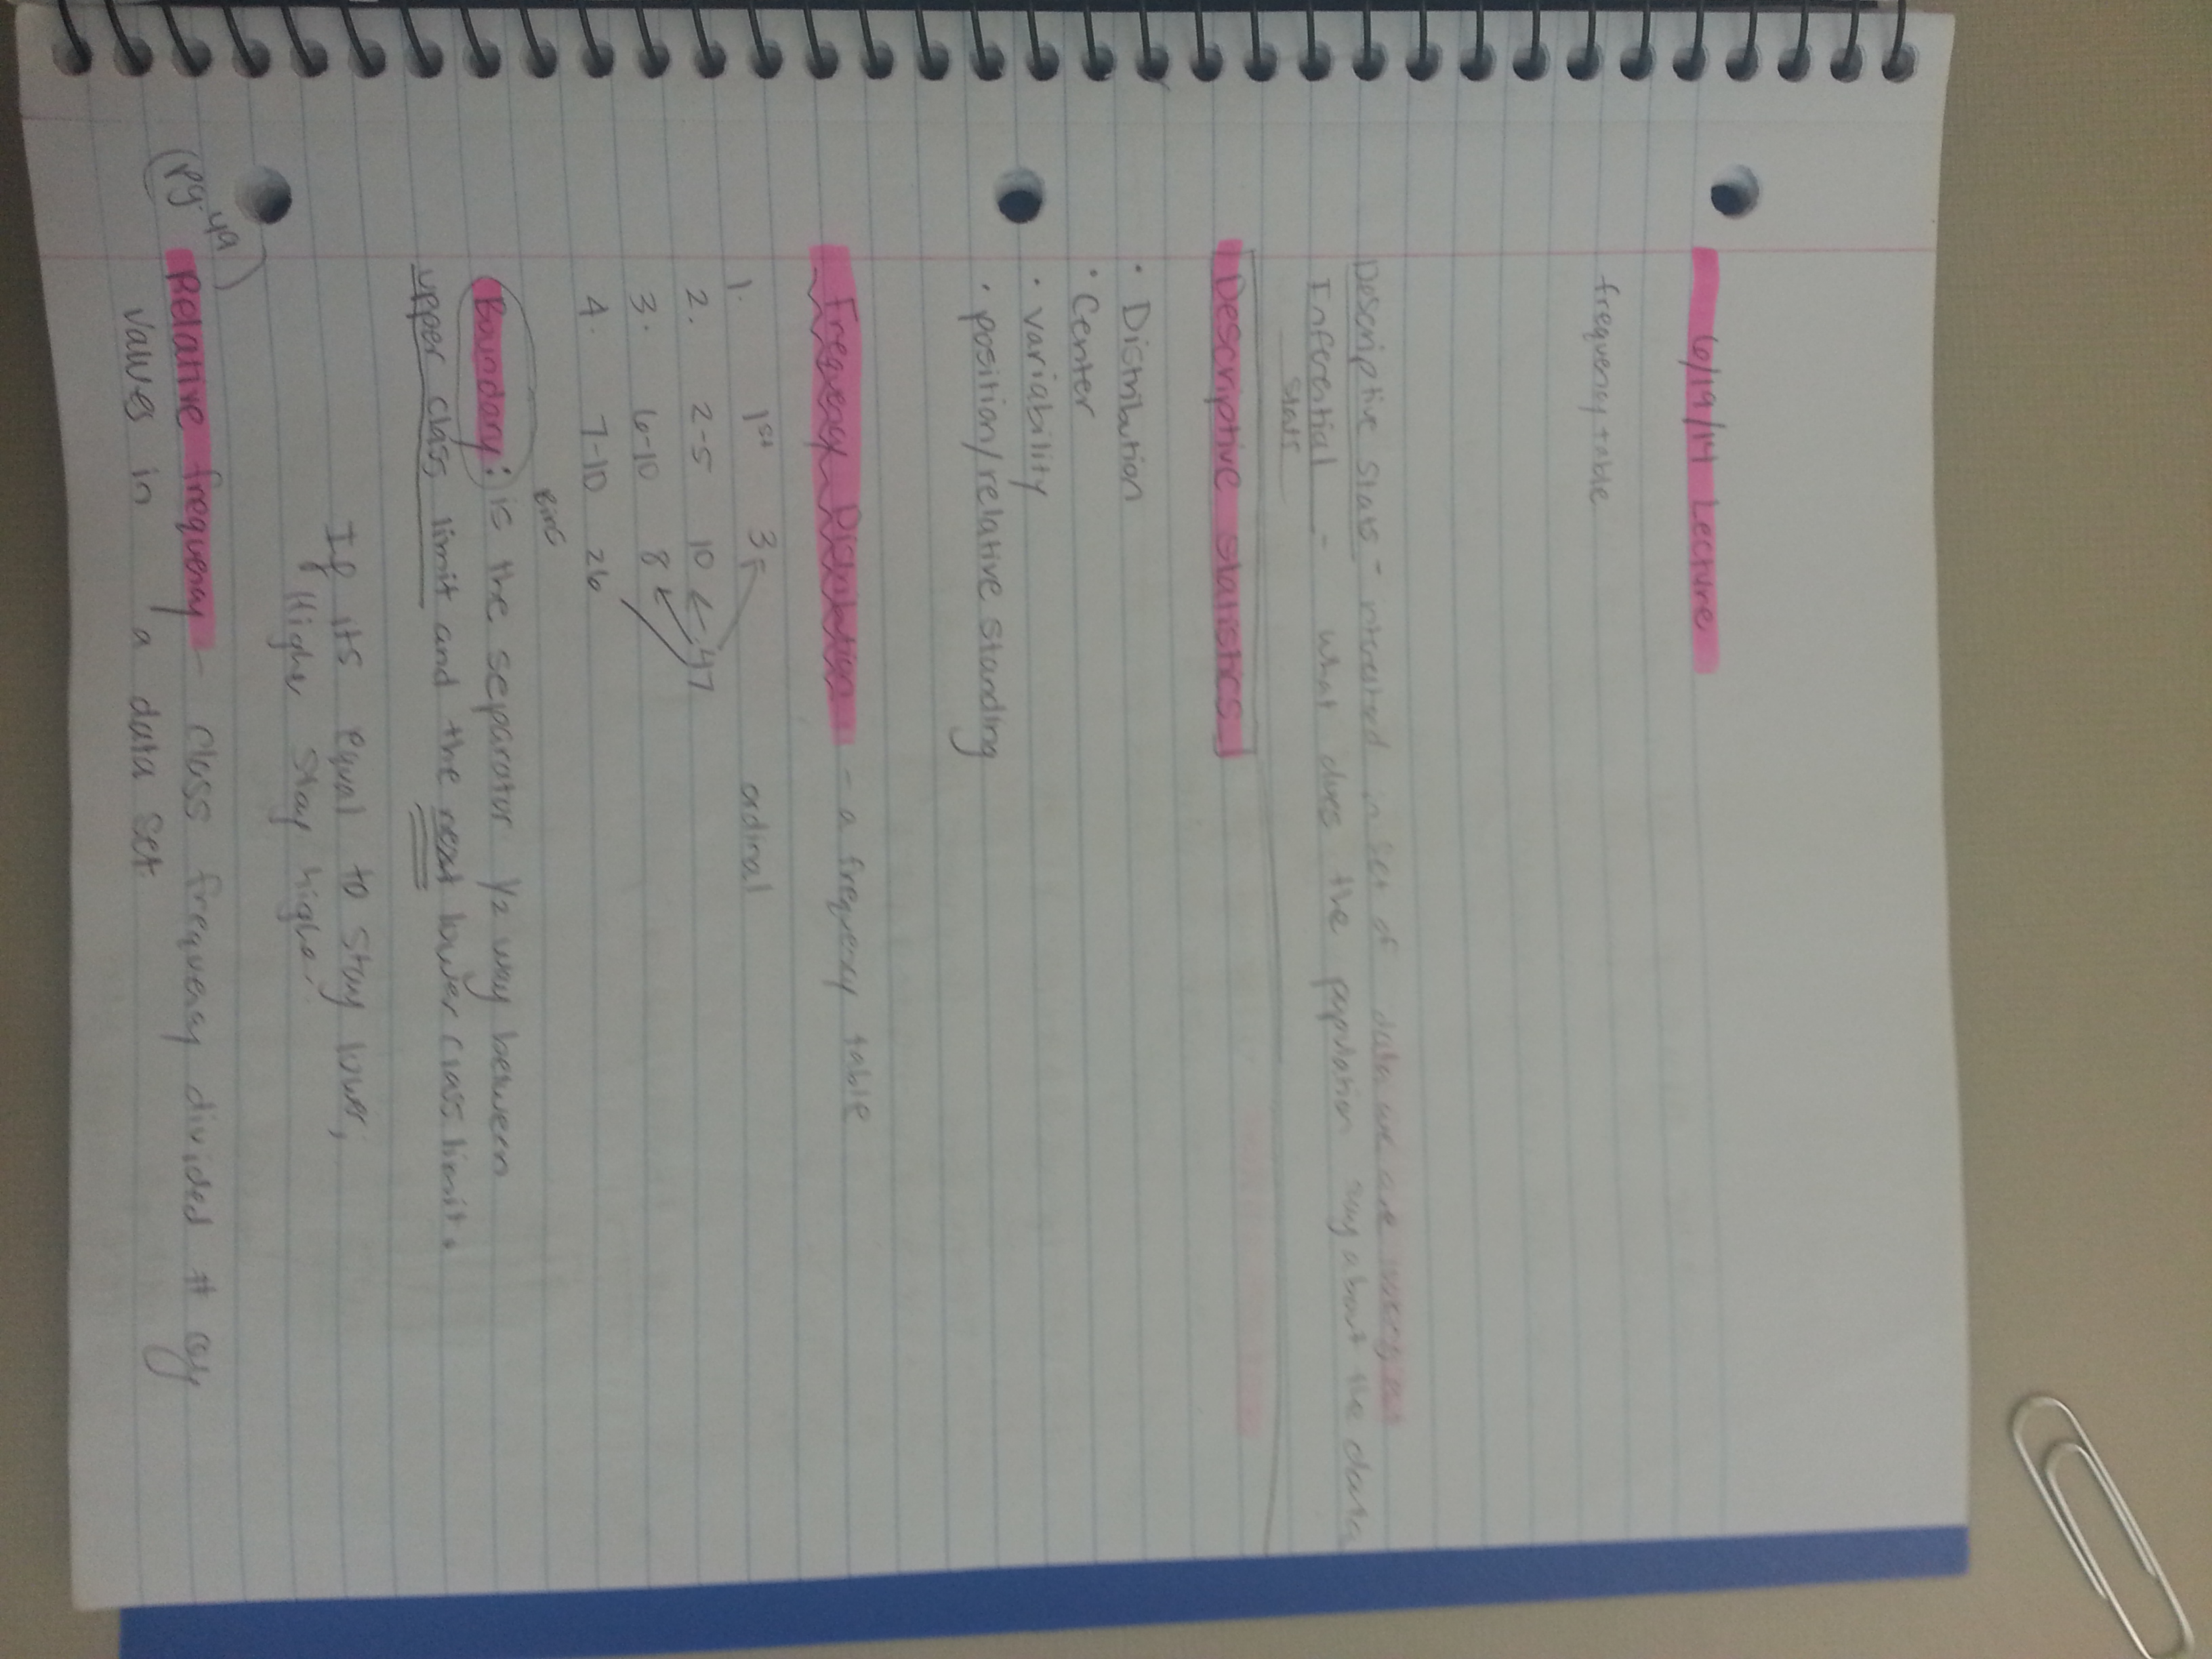 6/19/14 Lecture
frequency table
Descriptive stats - interested in set of data we are
Inferential - what does the population say about the data
stats
Descriptive statistics
• Distribution
• Center
• variability
• position/relative standing
Frequency Distribution - a frequency table
1. 1st 3 ordinal
2. 2-5 10 47
3. 6-10 8
4. 7-10 26
Bins
Boundary: is the separator 1/2 way between
upper class limit and the next lower class limit.
If its equal to stay lower,
Higher stay higher.
(pg. 49) Relative frequency - class frequency divided # by
values in a data set